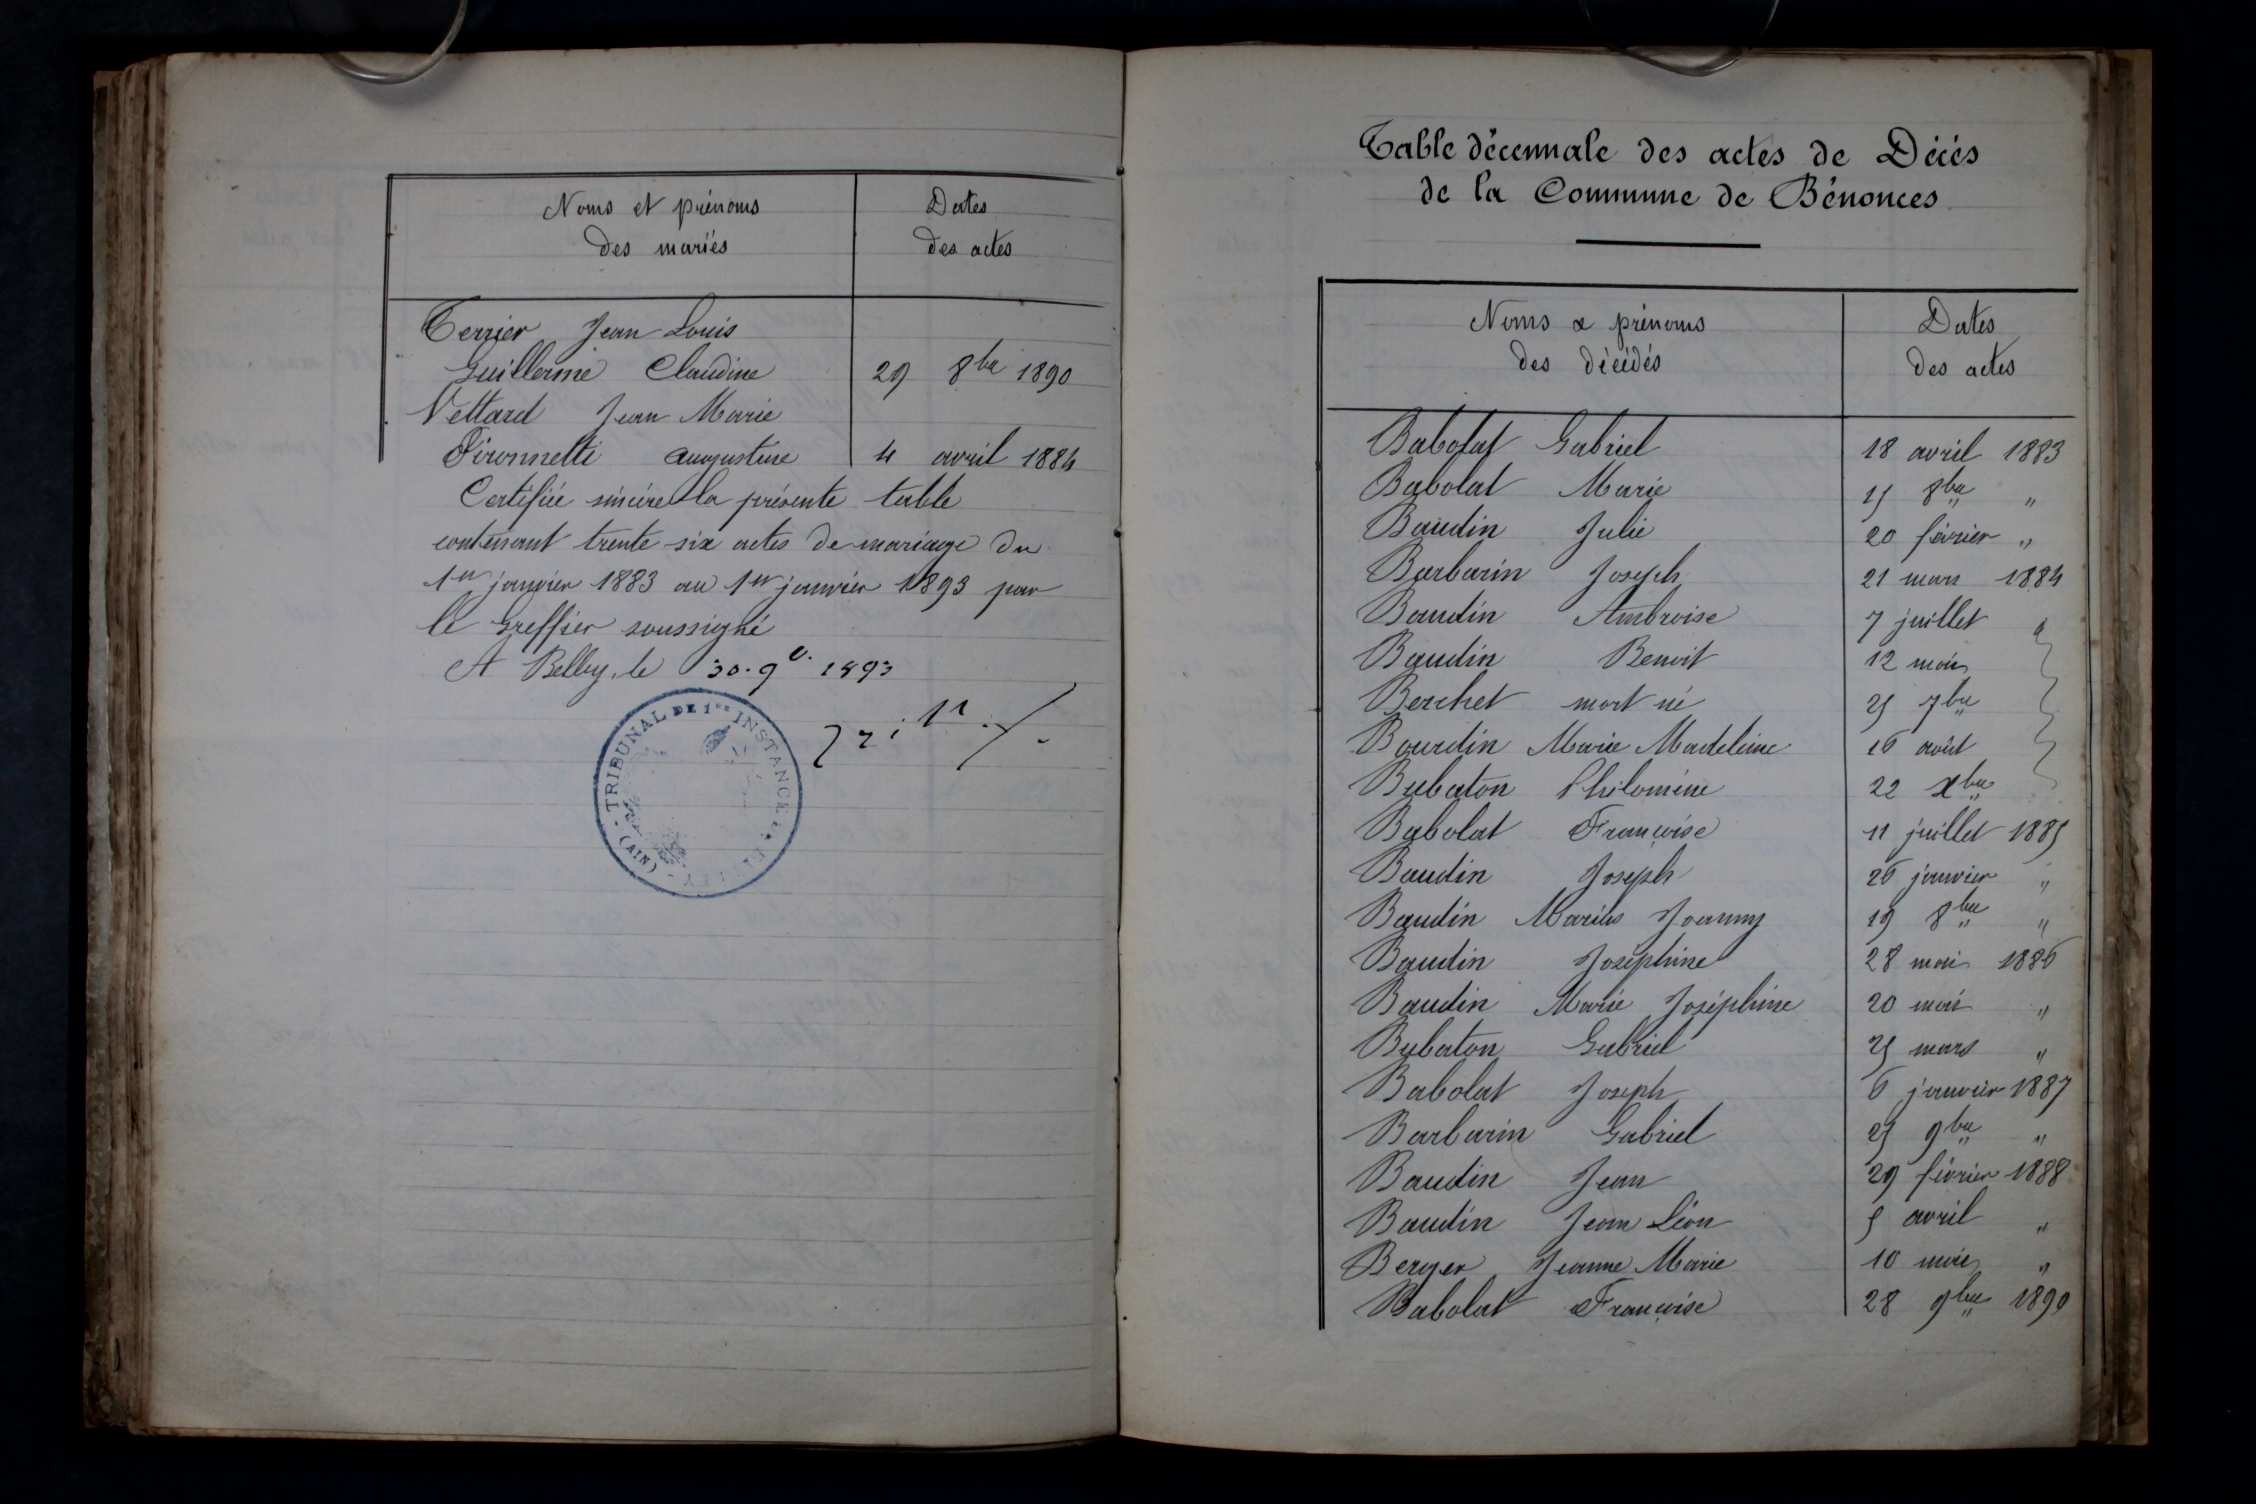 Noms et prénoms Dates
des mariés des actes
Terrier Jean Louis
Guillermé Claudine 29 8bre 1890
Vettard Jean Marie
Pironnetti augustine 4 avril 1884
Certifiée sincère la présente table
contenant trente six actes de mariage du
1er janvier 1883 au 1er janvier 1893 par
le Greffier soussigné
A Belley, le 30. 9e. 1893
TRIBUNAL DE 1re INSTANCE
(AIN)
Table décennale des actes de Décés
de la Commune de Bénonces
Noms & prénoms Dates
des décédés des actes
Babolat Gabriel 18 avril 1883
Babolat Marie 15 8bre "
Baudin Julie 20 février "
Barbarin Joseph 21 mars 1884
Baudin Ambroise 7 juillet "
Baudin Benoit 12 mai
Berchet mort né 25 7bre
Bourdin Marie Madeleine 16 août
Bubaton Philomène 22 Xbre
Babolat Françoise 11 juillet 1885
Baudin Joseph 26 janvier "
Baudin Marius Joanny 19 8bre "
Baudin Joséphine 28 mai 1886
Baudin Marie Joséphine 20 mai "
Bubaton Gabriel 25 mars "
Babolat Joseph 6 janvier 1887
Barbarin Gabriel 25 9bre "
Baudin Jean 29 février 1888
Baudin Jean Léon 5 avril "
Berger Jeanne Marie 10 mai "
Babolat Françoise 28 9bre 1890